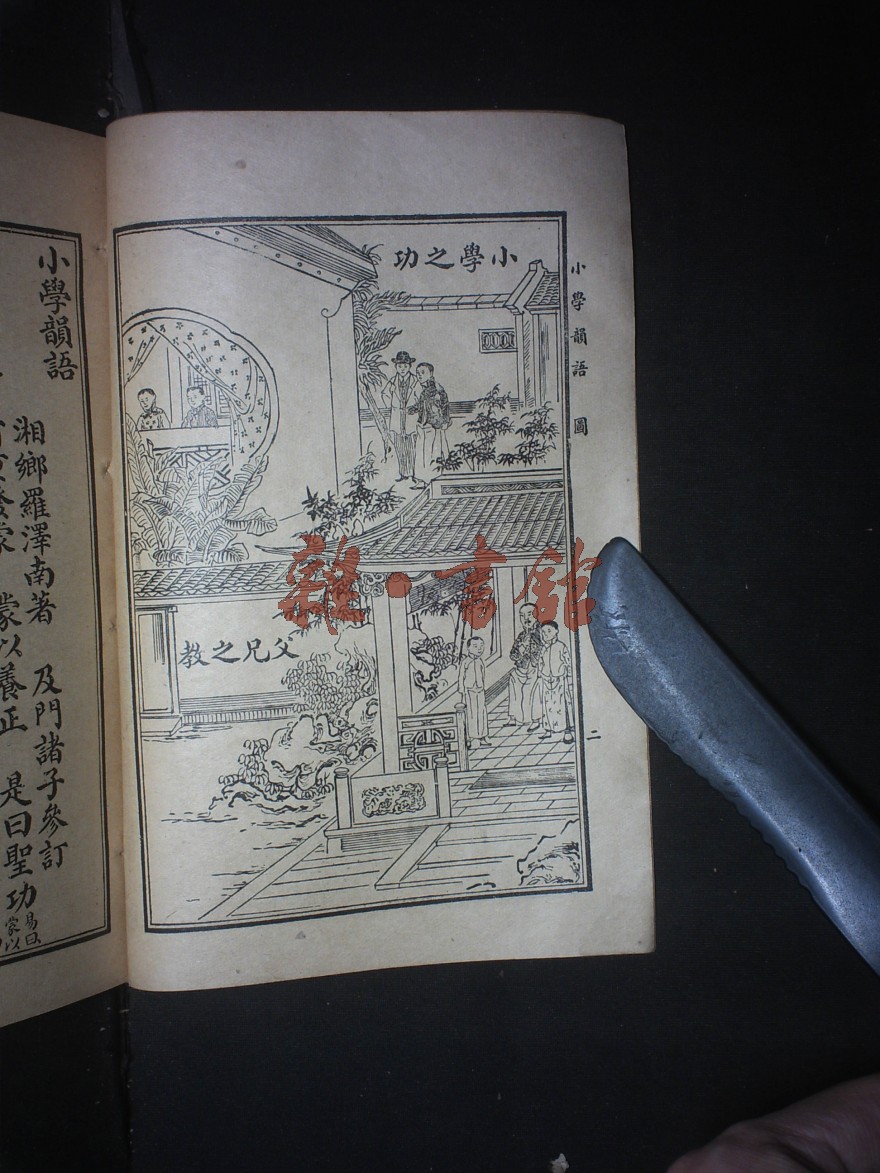 小學韻語 圖
二
小學之功
父兄之教
小學韻語
湘鄉羅澤南著 及門諸子參訂
蒙以養正 是曰聖功
易曰
蒙以
雜·書館